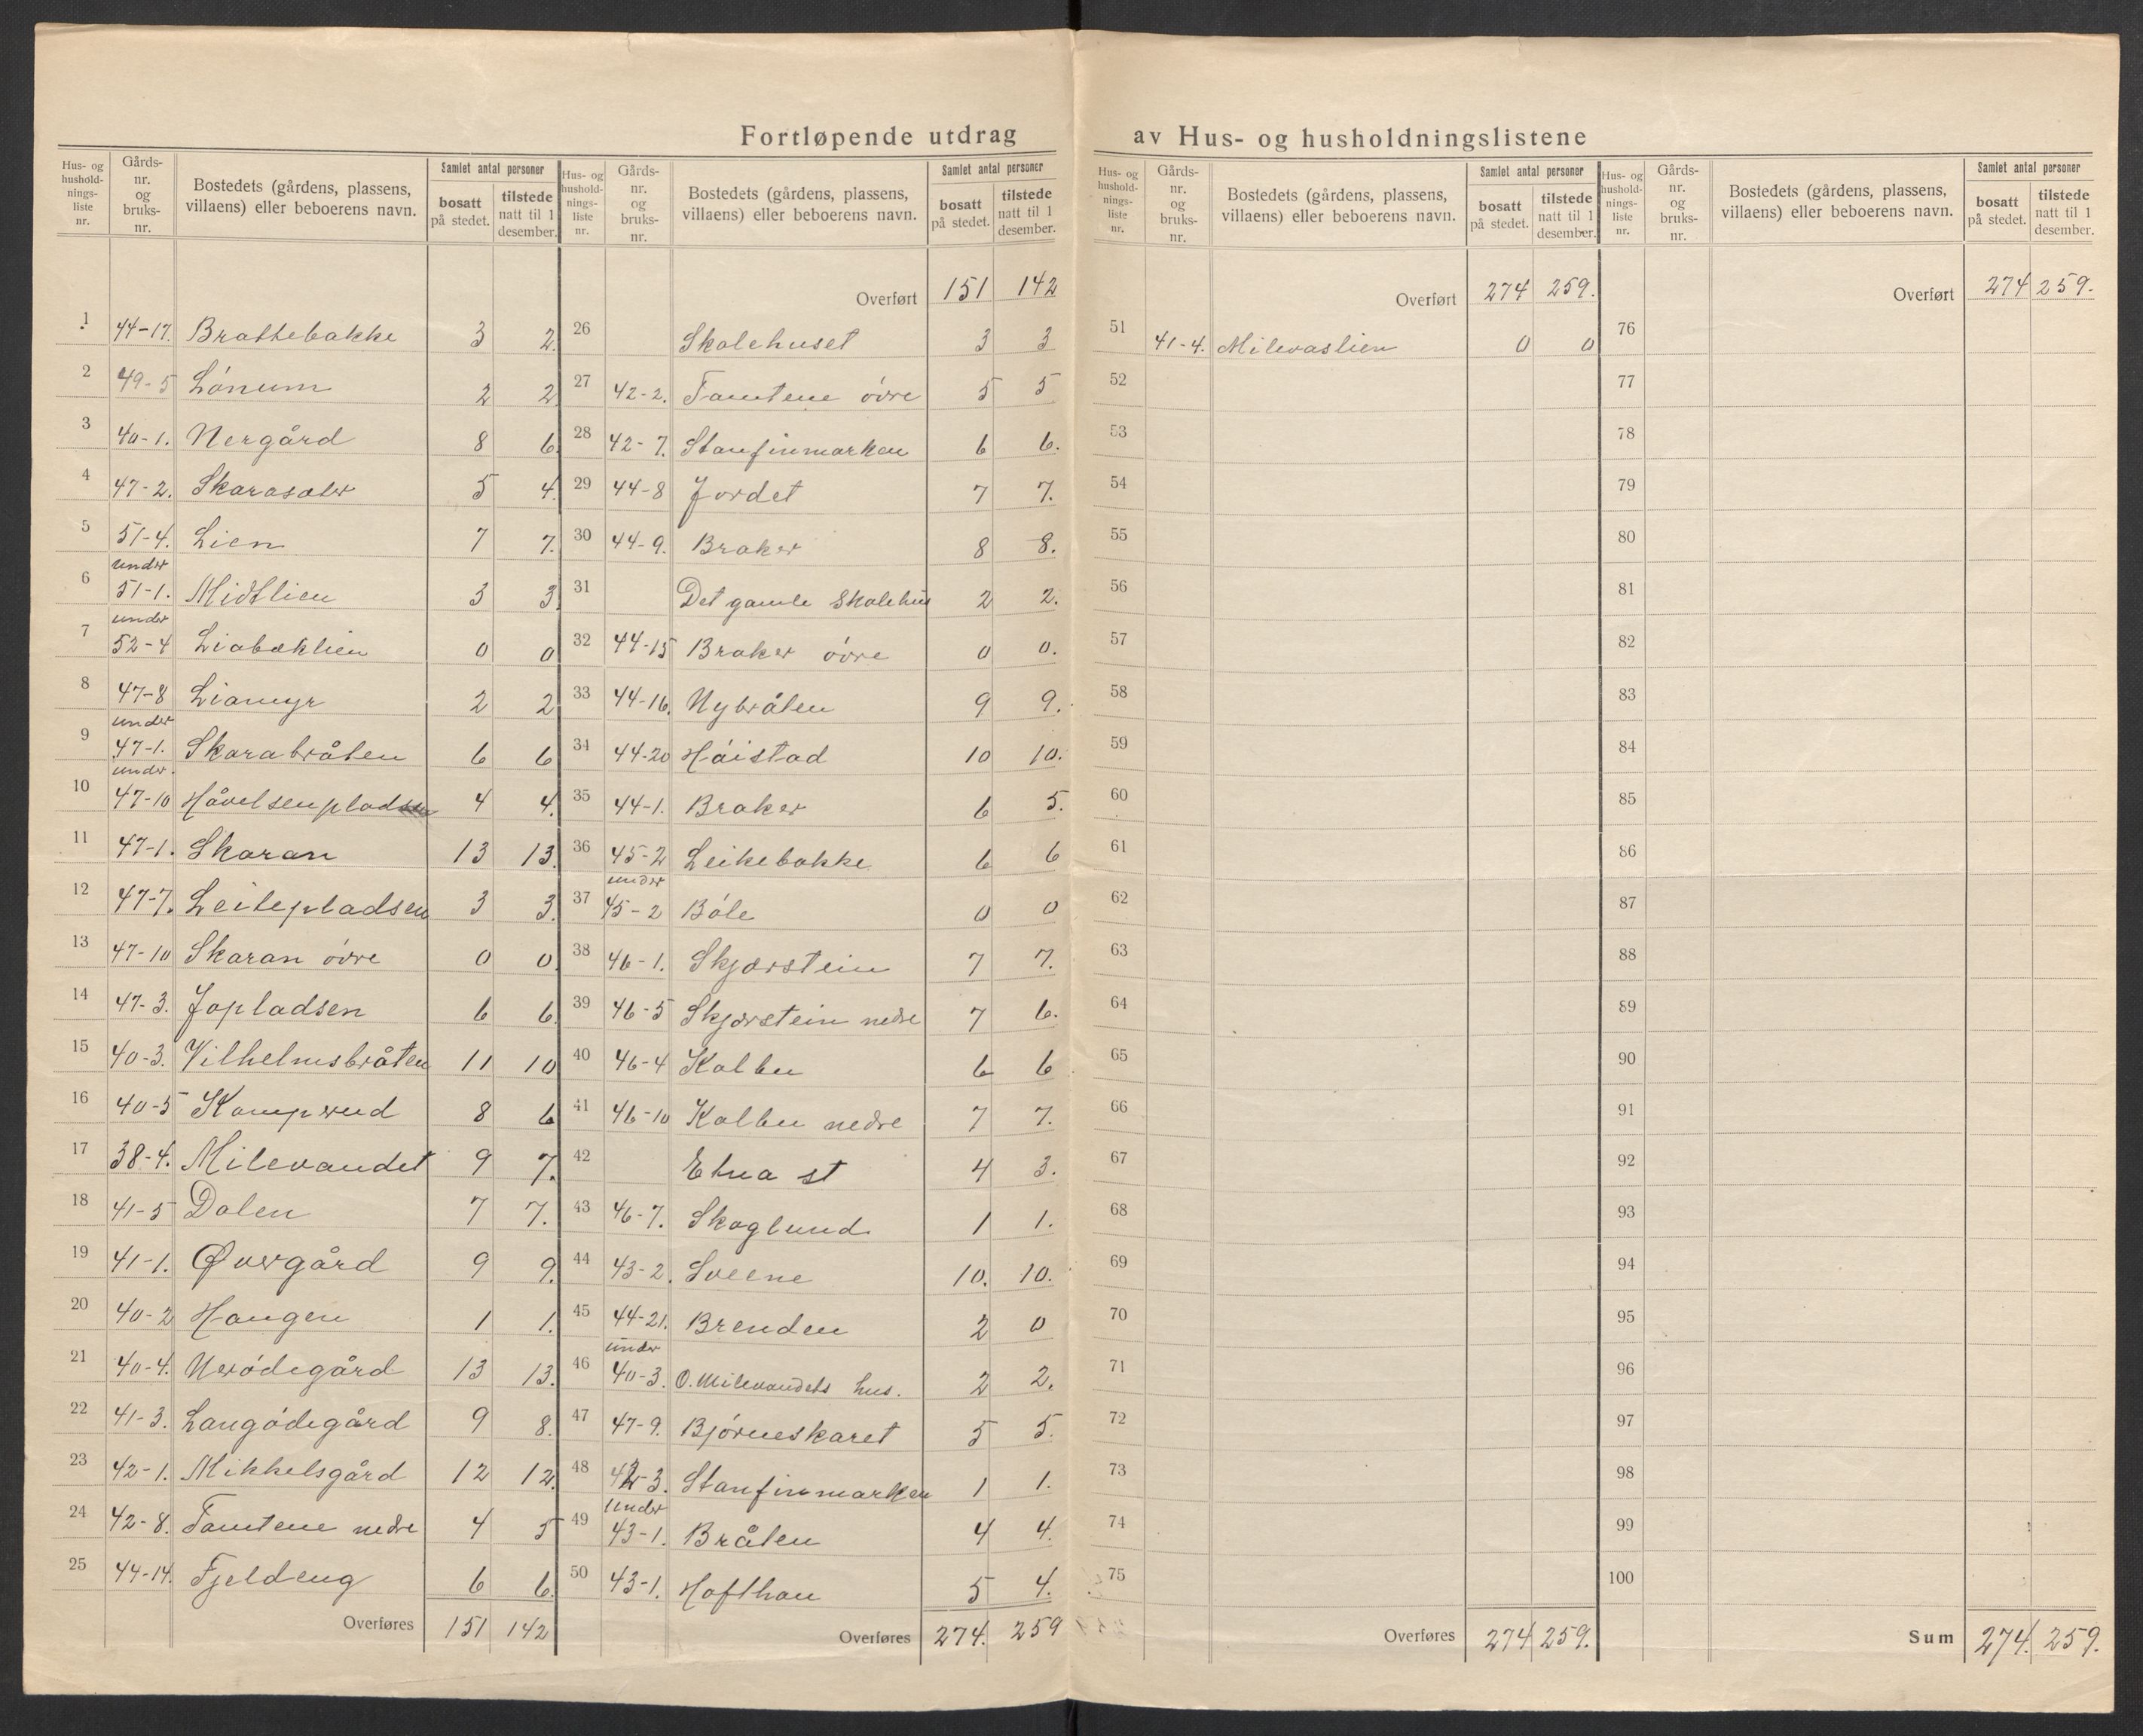 Fortløpende utdrag av Hus- og husholdningslistene
Hus- og husholdnings-liste nr. | Gårds-nr. og bruks-nr. | Bostedets (gårdens, plassens, villaens) eller beboerens navn. | Samlet antal personer | bosatt på stedet. | tilstede natt til 1 desember.
1 44-17. Brattebakke 3 2.
2 49-5 Lónum 2 2
3 40-1. Nergård 8 6.
4 47-2. Skarasæter 5 4.
5 51-4. Lien 7 7.
6 under 51-1. Midtlien 3 3.
7 under 52-4 Liabæklien 0 0
8 47-8 Liamyr 2 2
9 under 47-1. Skarabråten 6 6
10 under 47-10 Håvelsenpladsen 4 4.
11 47-1. Skaran 13 13.
12 47-7. Leitepladsen 3 3.
13 47-10 Skaran óvre 0 0.
14 47-3. Jopladsen 6 6.
15 40-3. Vilhelmsbråten 11 10
16 40-5 Kamprud 8 6
17 38-4. Milevandet 9 7.
18 41-5 Dalen 7 7.
19 41-1. Øvergård 9 9.
20 40-2 Haugen 1 1.
21 40-4. Nerødegård 13 13.
22 41-3. Langódegård 9 8.
23 42-1. Mikkelsgård 12 12.
24 42-8. Tomtene nedre 4 5
25 44-14. Fjeldeng 6 6.
Overføres 151 142
Hus- og husholdnings-liste nr. | Gårds-nr. og bruks-nr. | Bostedets (gårdens, plassens, villaens) eller beboerens navn. | Samlet antal personer | bosatt på stedet. | tilstede natt til 1 desember.
Overført 151 142
26 Skolehuset 3 3
27 42-2. Tomtene óvre 5 5
28 42-7. Stanfinmarken 6 6.
29 44-8 Jordet 7 7.
30 44-9. Braker 8 8.
31 Det gamle Skolehus 2 2.
32 44-15 Braker óvre 0 0.
33 44-16. Nybråten 9 9.
34 44-20 Hóistad 10 10.
35 44-1. Braker 6 5.
36 45-2 Leikebakke 6 6
37 under 45-2 Bóle 0 0
38 46-1. Skjærstein 7 7.
39 46-5 Skjærstein nedre 7 6.
40 46-4 Kolbu 6 6
41 46-10 Kolbu nedre 7 7.
42 Etna st 4 3.
43 46-7. Skoglund 1 1.
44 43-2. Sveene 10. 10.
45 44-21. Brenden 2 0
46 under 40-3. O. Milevandets hus. 2 2.
47 47-9. Bjórneskaret 5 5.
48 42-3. Stanfinmarken 1 1.
49 under 43-1. Bråten 4 4.
50 43-1. Hofthau 5 4.
Overføres 274. 259
Hus- og husholdnings-liste nr. | Gårds-nr. og bruks-nr. | Bostedets (gårdens, plassens, villaens) eller beboerens navn. | Samlet antal personer | bosatt på stedet. | tilstede natt til 1 desember.
Overført 274 259.
51 41-4. Milevaslien 0 0
52
53
54
55
56
57
58
59
60
61
62
63
64
65
66
67
68
69
70
71
72
73
74
75
Overføres 274 259.
Hus- og husholdnings-liste nr. | Gårds-nr. og bruks-nr. | Bostedets (gårdens, plassens, villaens) eller beboerens navn. | Samlet antal personer | bosatt på stedet. | tilstede natt til 1 desember.
Overført 274 259.
76
77
78
79
80
81
82
83
84
85
86
87
88
89
90
91
92
93
94
95
96
97
98
99
100
Sum 274. 259.